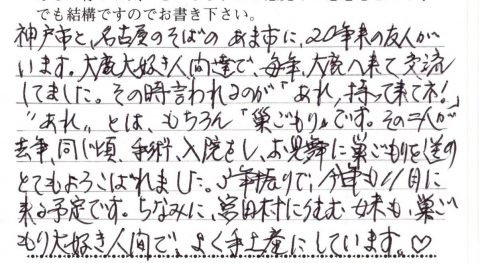 でも結構ですのでお書き下さい。
神戸市と、名古屋のそばの あま市に、20年来の友人が
います。大鹿大好き人間達で、毎年、大鹿へ来て交流
してました。その時言われるのが「あれ、持って来てネ!」
"あれ〟とは、もちろん「巣ごもり」です。その二人が
去年、同じ頃、手術、入院をし、お見舞に巣ごもりを送り
とてもよろこばれました。5年振りで、今年も11月に
来る予定です。ちなみに、宮田村にすむ 妹も、巣ご
もり大好き人間で、よく手土産にしています。♡